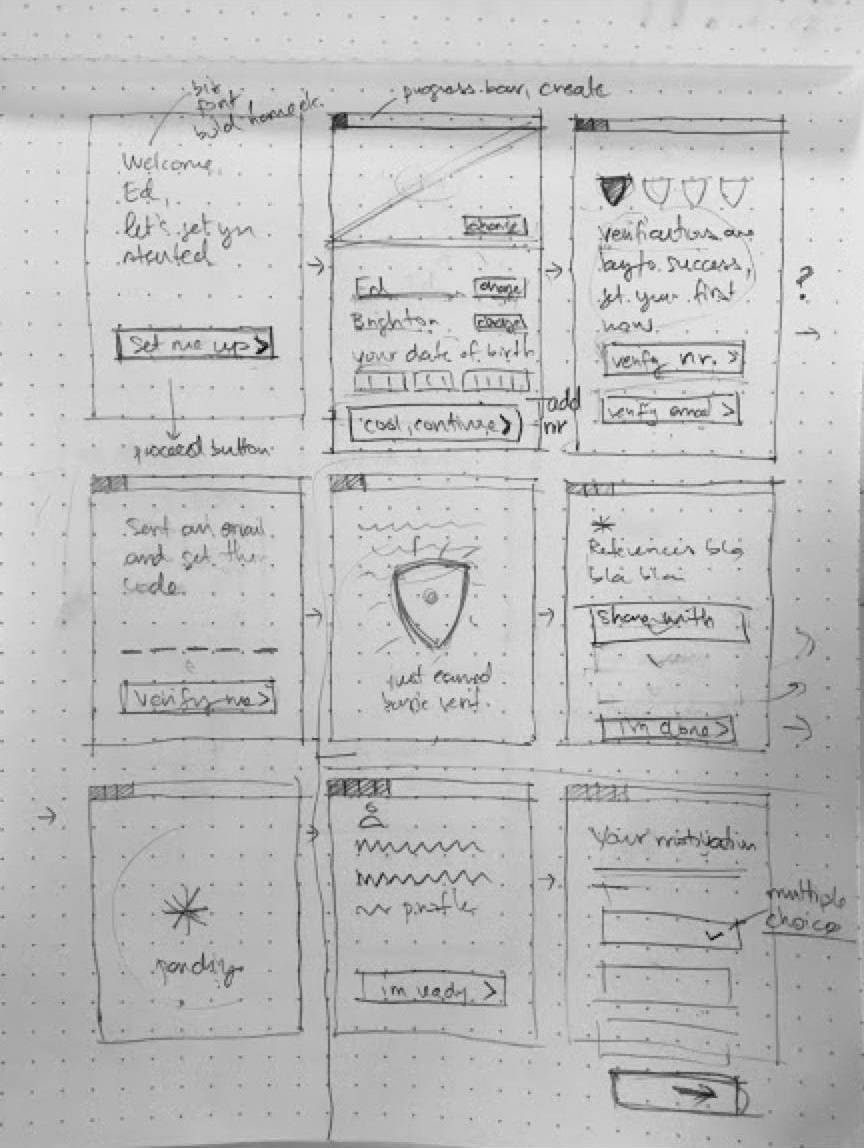 big
font
bold, home
progress bar, create
Welcome,
Ed,
let's get you
started
Set me up >
proceed button
change
Ed
change
Brighton
change
your date of birth
cool, continue >
add
nr
verifications are
key to success,
get your first
now.
verify nr. >
verify email >
?
Sent an email
and get the
code.
Verify me >
just earned
basic verif.
References bla
bla bla
Share with
i'm done >
pending
profile
im ready >
Your motivation
multiple
choice